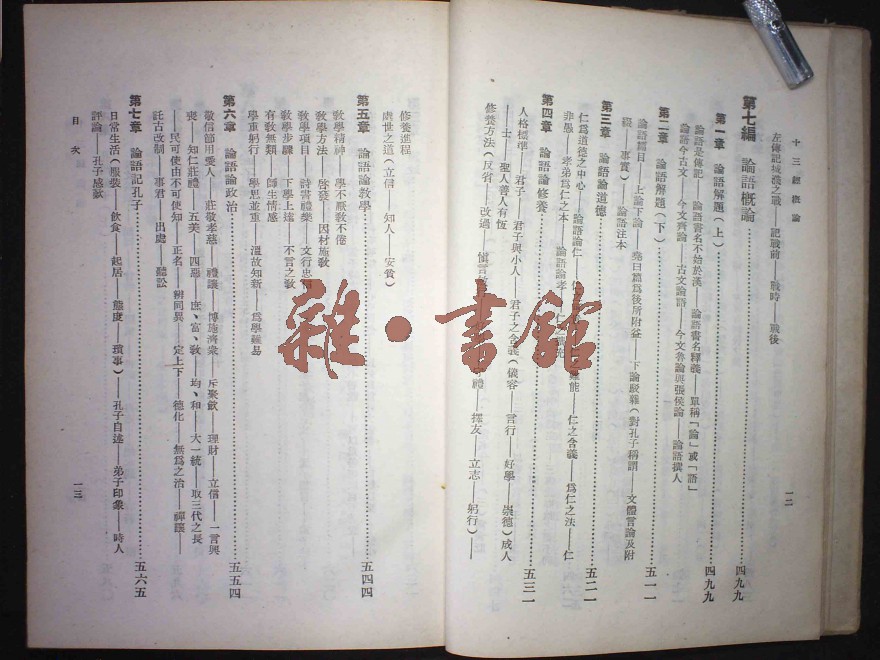 十三經概論
一二
左傳記城濮之戰——記戰前——戰時——戰後
第七編 論語概論……四九九
第一章 論語解題(上)……四九九
論語是傳記——論語書名不始於漢——論語書名釋義——單稱「論」或「語」
論語今古文——今文齊論——古文論語——今文魯論與張侯論——論語撰人
第二章 論語解題(下)……五一一
論語篇目——上論下論——堯曰篇為後所附益——下論駁雜(對孔子稱謂——文體言論及附
綴——事實)——論語注本
第三章 論語論道德……五二一
仁為道德之中心——論語論仁——能——仁之含義——為仁之法——仁
非愚——孝弟為仁之本——論語論孝
第四章 論語論修養……五三一
人格標準——君子——君子與小人——君子之含義(儀容——言行——好學——崇德)成人
——士——聖人善人有恆
修養方法(反省——改過——慎言——禮——擇友——立志——躬行)——
修養進程
處世之道(立信——知人——安貧)
第五章 論語論教學……五四四
教學精神——學不厭教不倦
教學方法——啓發——因材施教
教學項目——詩書禮樂——文行忠信
教學步驟——下學上達——不言之教
有教無類——師生情感
學重躬行——學思並重——溫故知新——為學難易
第六章 論語論政治……五五四
敬信節用愛人——莊敬孝慈——禮讓——博施濟衆——斥聚歛——理財——立信——一言興
喪——知仁莊禮——五美——四惡——庶、富、教——均、和——大一統——取三代之長
——民可使由不可使知——正名——辨同異——定上下——德化——無為之治——禪讓——
託古改制——事君——出處——聽訟
第七章 論語記孔子……五六五
日常生活(服裝——飲食——起居——態度——瑣事)——孔子自述——弟子印象——時人
評論——孔子感歎
目次
一三
雜·書館